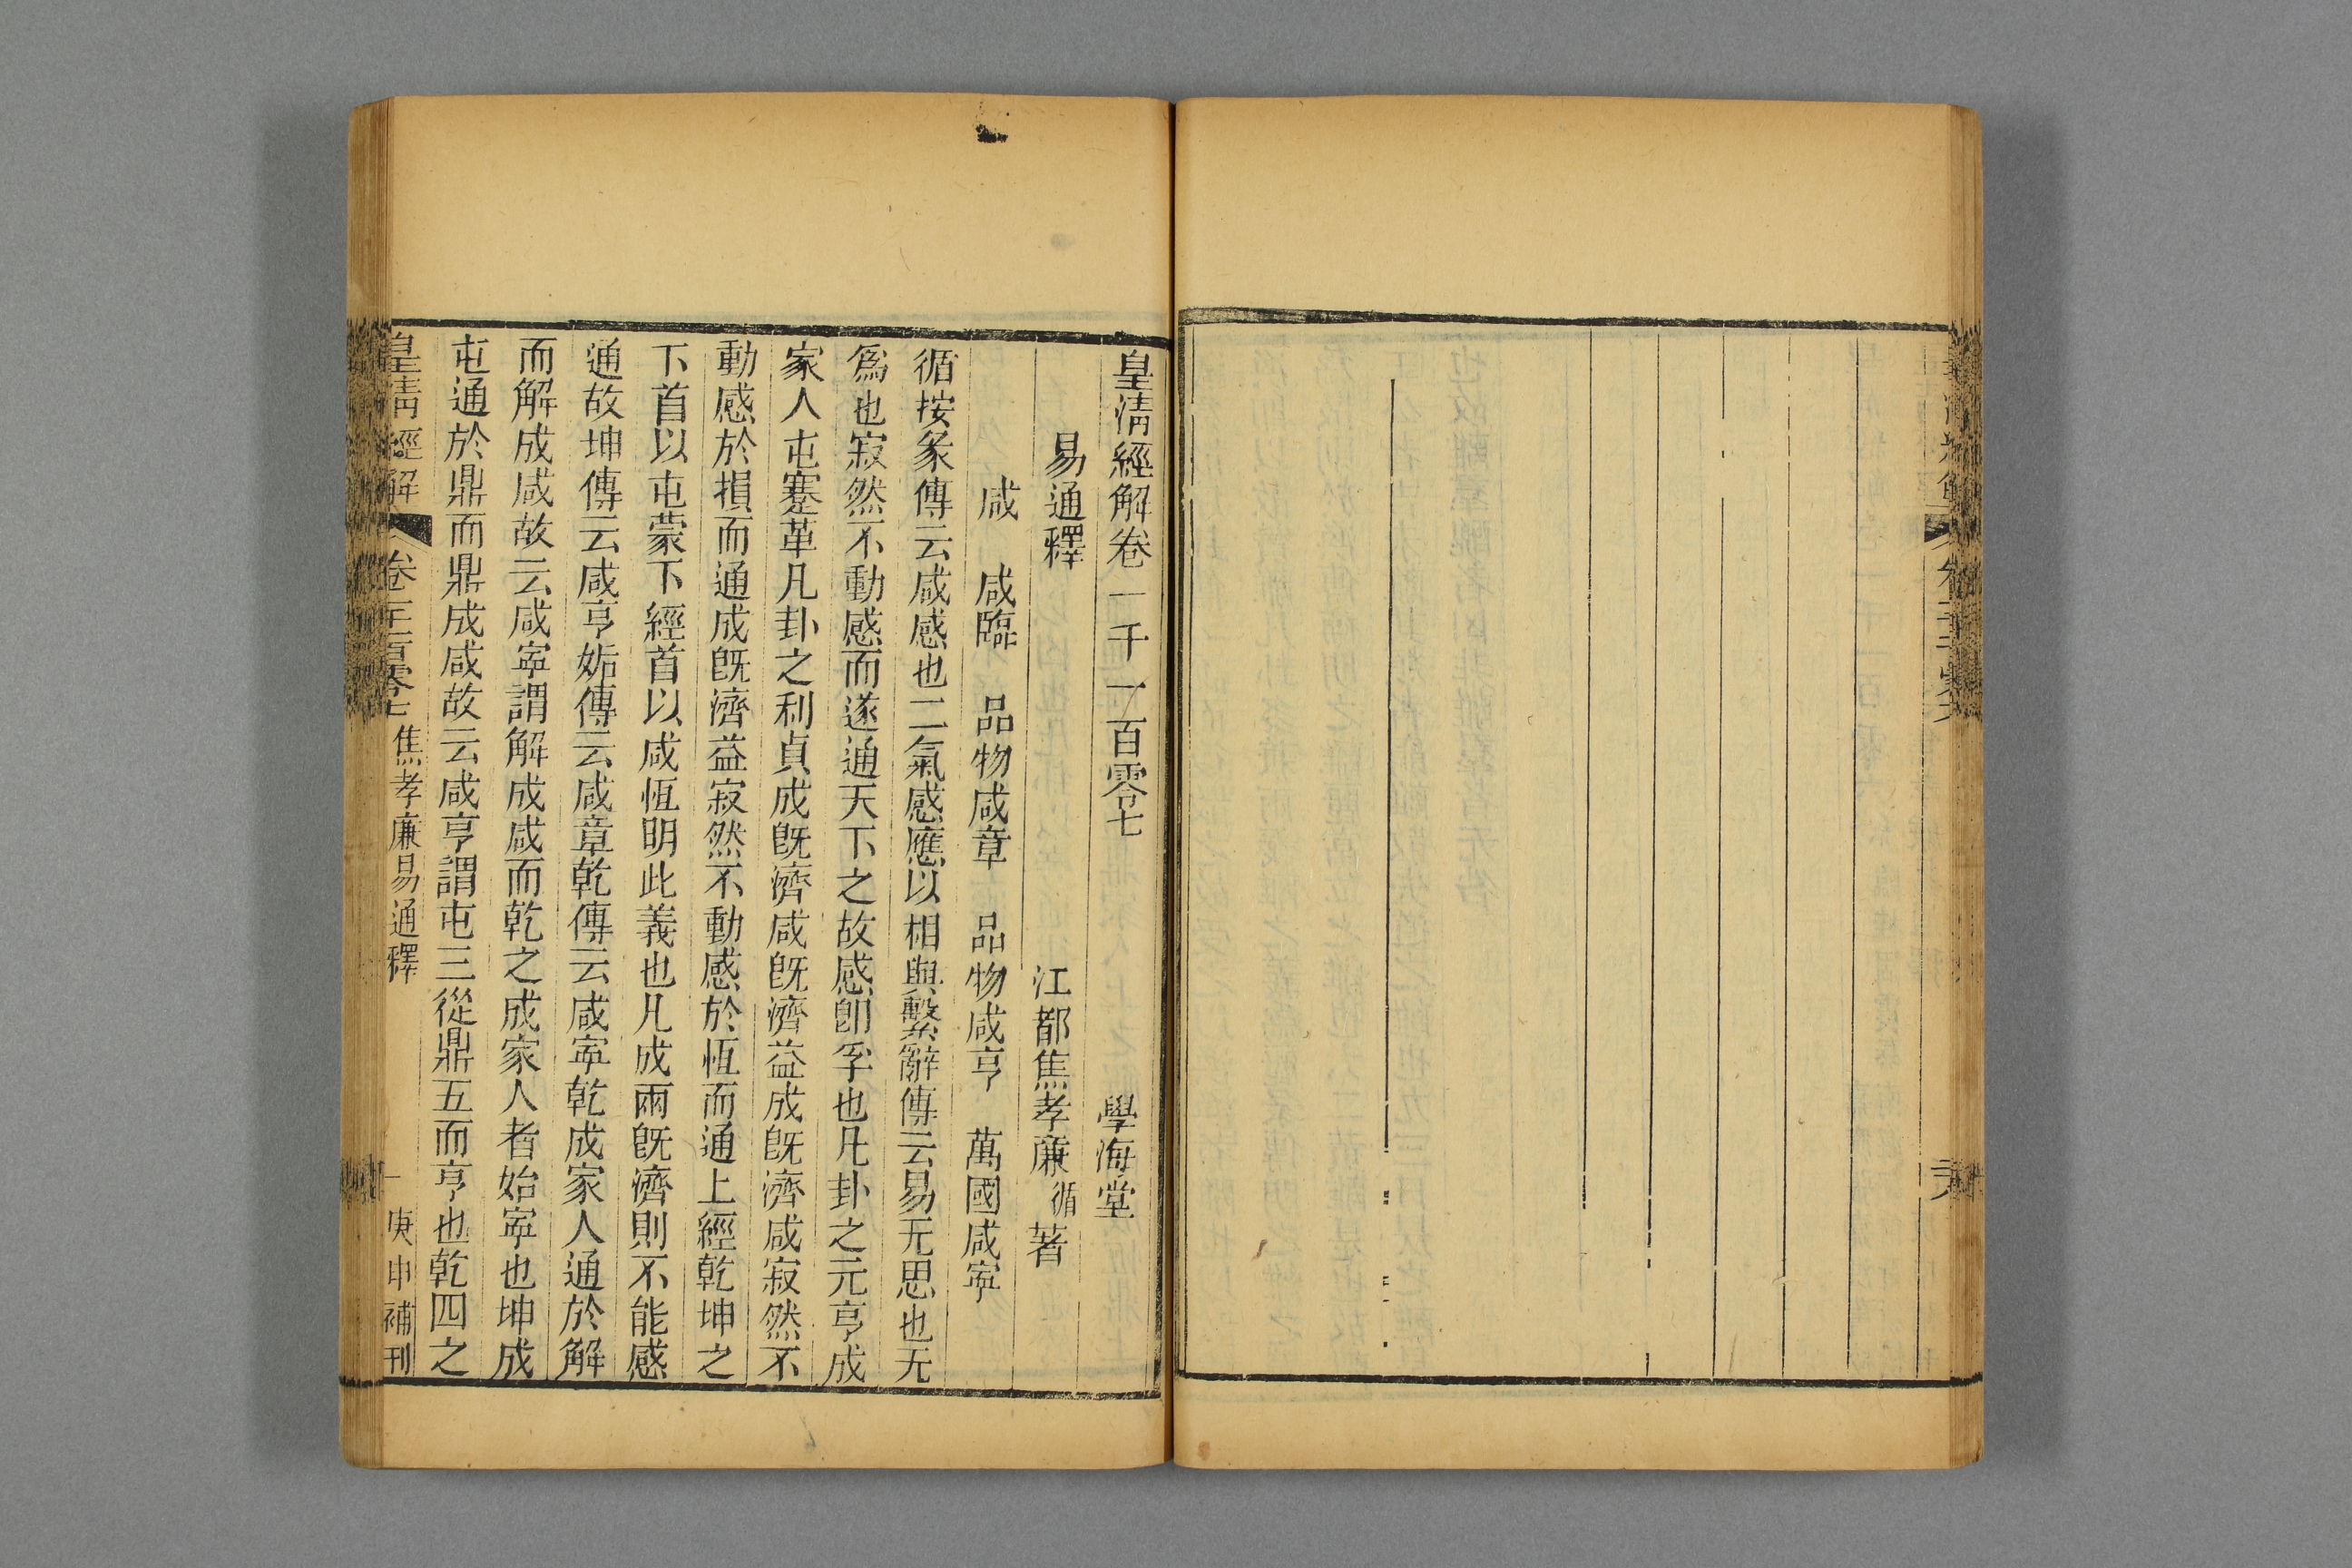 皇清經解卷一千一百零七 學海堂
易通釋 江都焦孝廉循著
咸 咸臨 品物咸章 品物咸亨 萬國咸寕
循按彖傳云咸感也二氣感應以相與繫辭傳云易无思也无
爲也寂然不動感而遂通天下之故感卽孚也凡卦之元亨成
家人屯蹇革凡卦之利貞成旣濟咸旣濟益成旣濟咸寂然不
動感於損而通成旣濟益寂然不動感於恆而通上經乾坤之
下首以屯蒙下經首以咸恆明此義也凡成兩旣濟則不能感
通故坤傳云咸亨姤傳云咸章乾傳云咸寕乾成家人通於解
而解成咸故云咸寕謂解成咸而乾之成家人者始寕也坤成
屯通於鼎而鼎成咸故云咸亨謂屯三從鼎五而亨也乾四之
皇清經解 卷一千一百零七 焦孝廉易通釋 一 庚申補刊